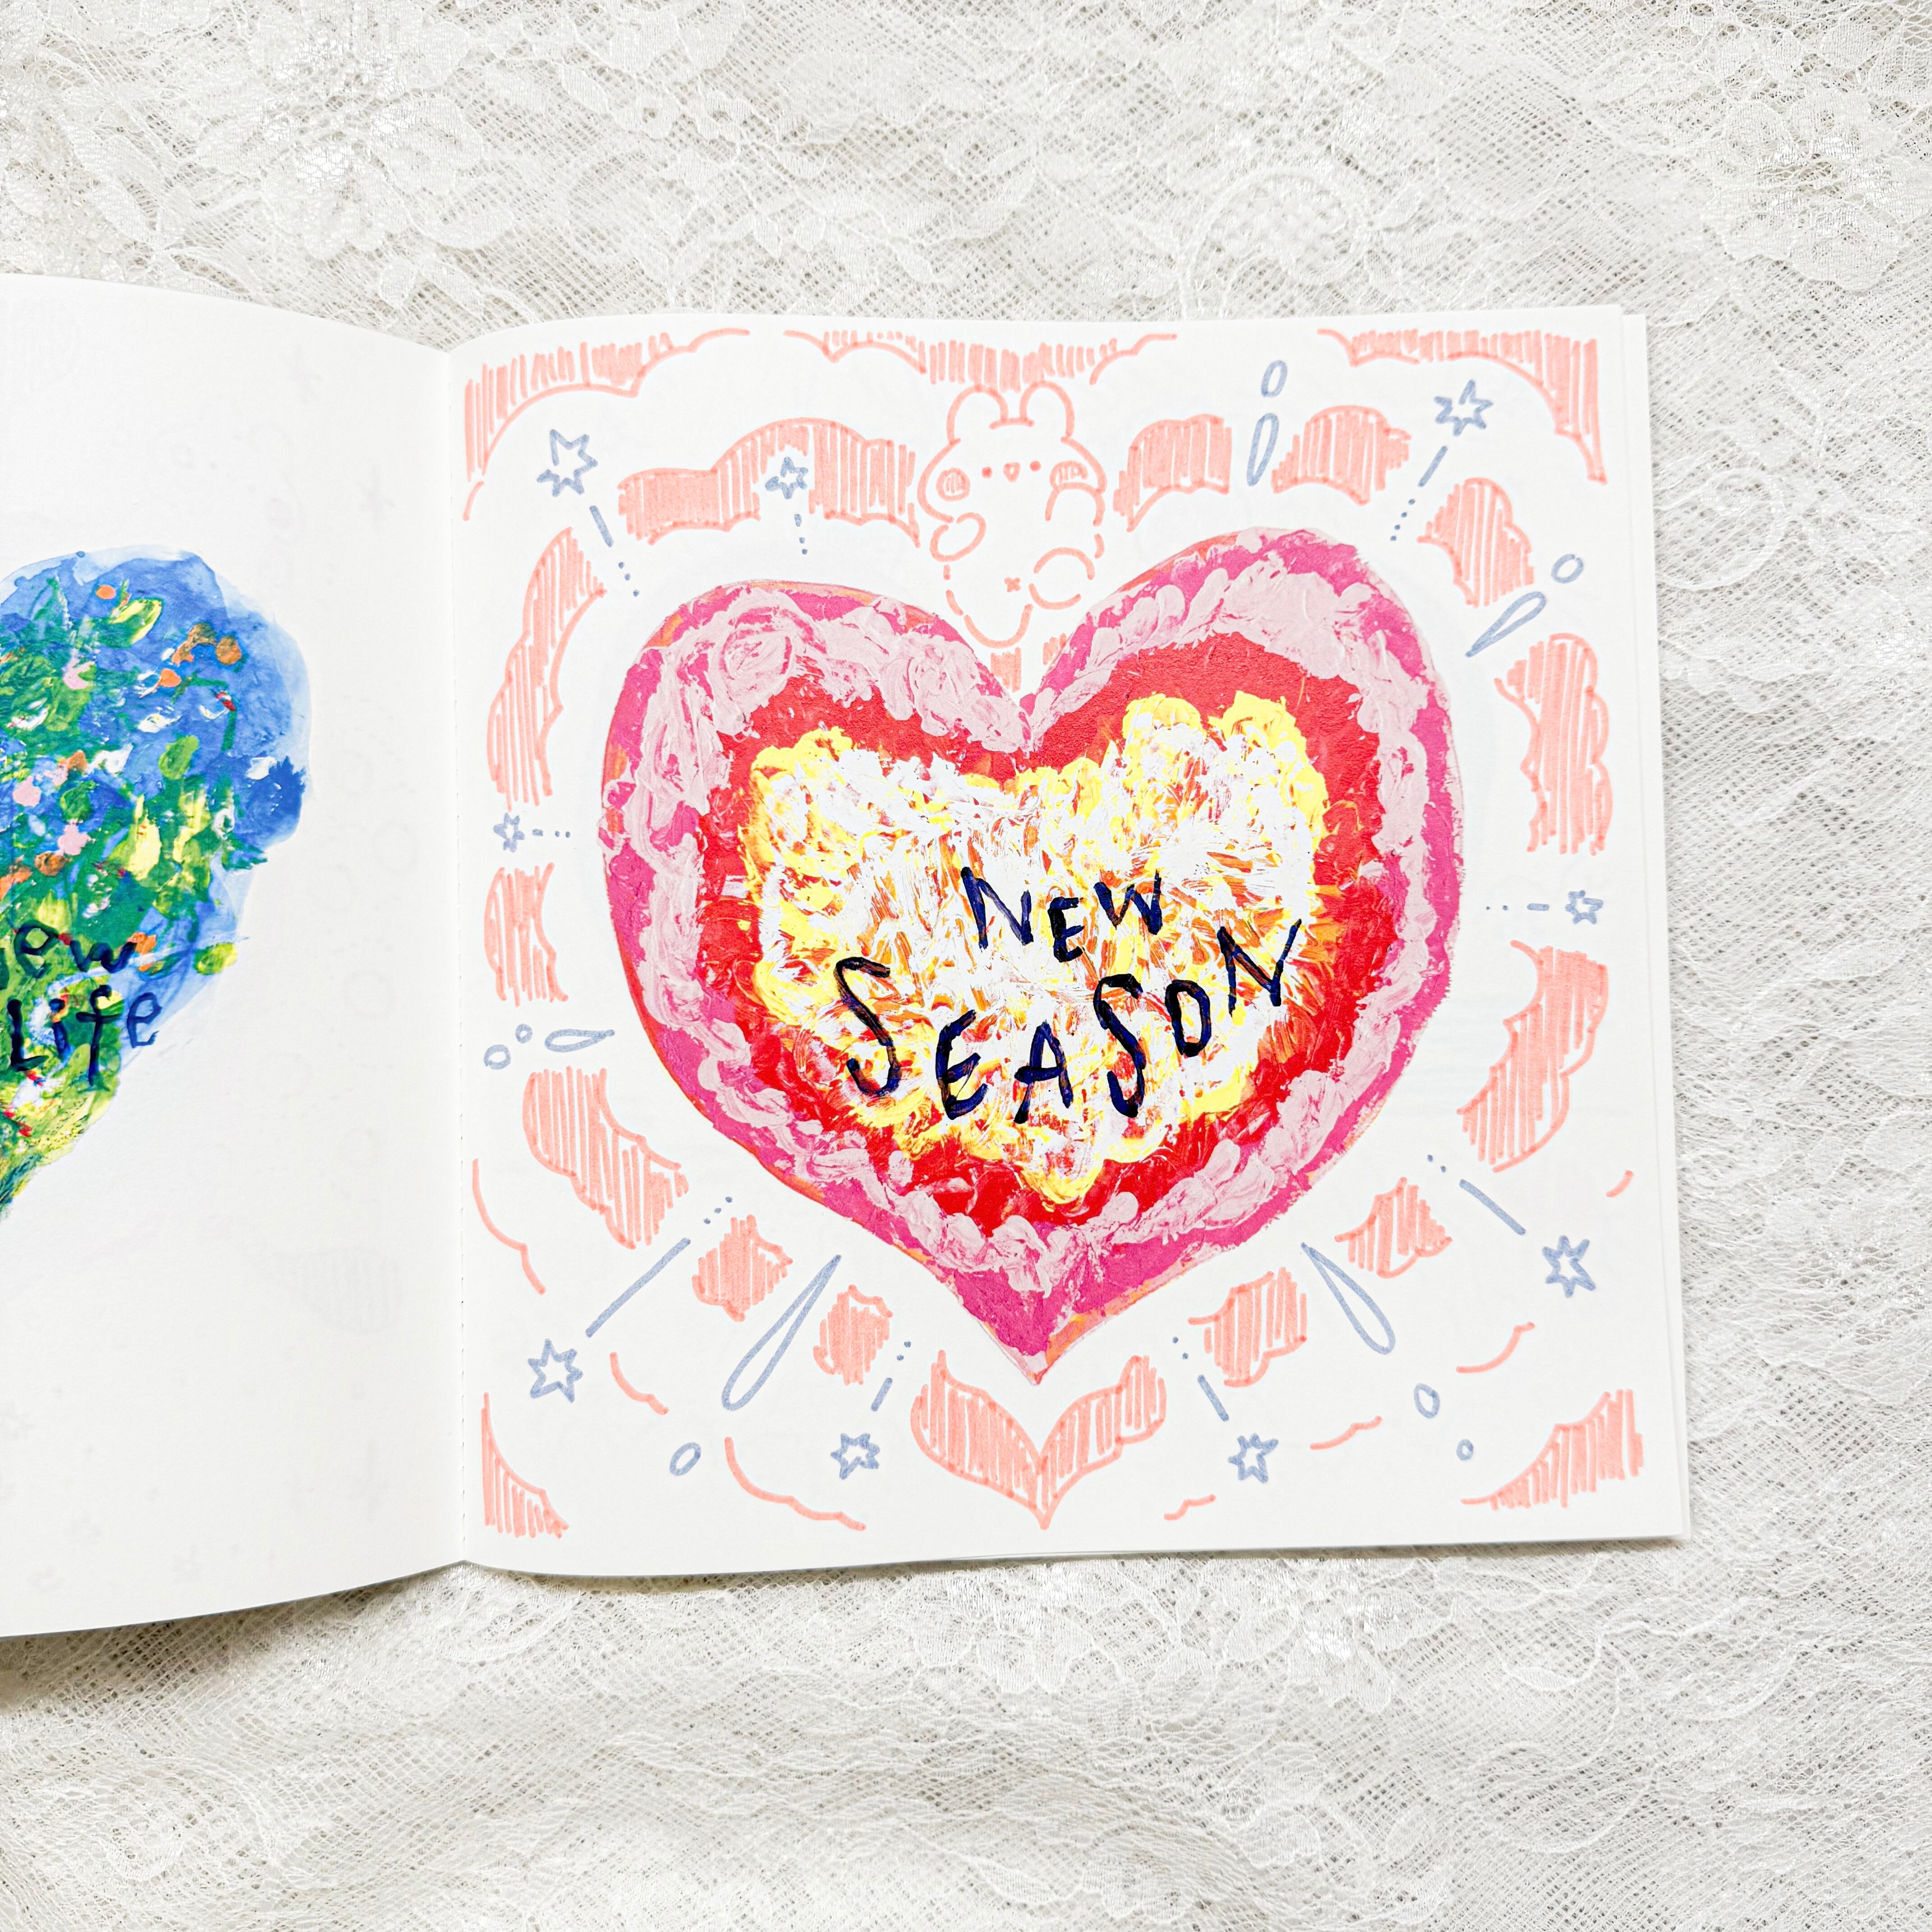 Life
NEW
SEASON